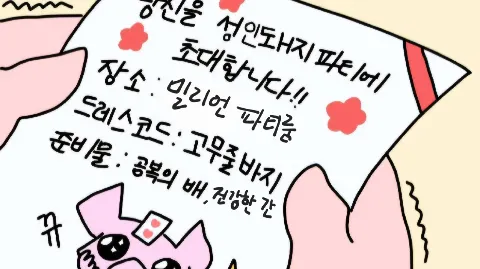 당신을 성인도H지 파티에
초대합니다!!
장소 : 밀리언 파티룸
드레스코드 : 고무줄바지
준비물 : 공복의 배, 건강한 간
뀨